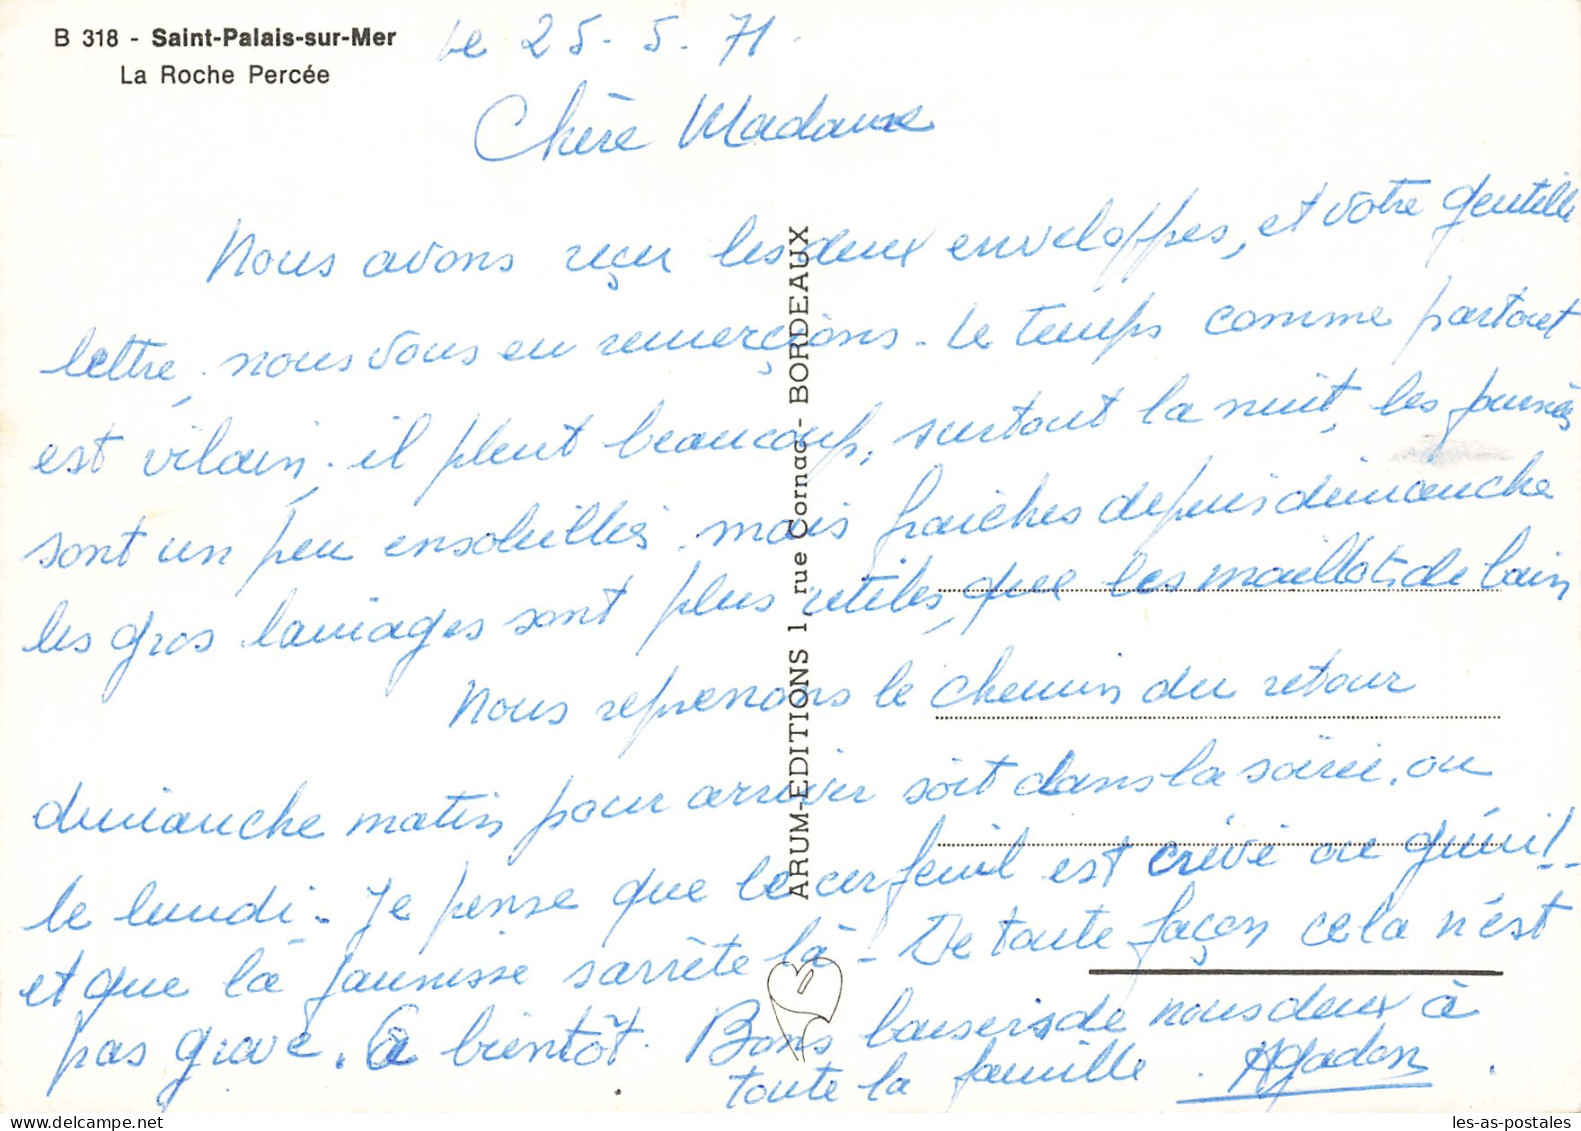 B 318 - Saint-Palais-sur-Mer
La Roche Percée
Le 25-5-71.
Chère Madame
Nous avons reçu les deux enveloppes, et votre gentille
lettre, nous vous en remerçions. Le temps comme partout
est vilain, il pleut beaucoup, surtout la nuit, les
sont un peu ensoleillés, mais fraiches depuis dimanche
les gros lainages sont plus utiles, que les maillots de bain
Nous reprenons le chemin du retour
dimanche matin pour arriver soit dans la soirée, ou
le lundi. Je pense que le cerfeuil est crevé ou guéri!
et que la jaunisse sarrète là - De toute façon cela n'est
pas grave. a bientôt. Bons baisers de nous deux à
toute la famille.
ARUM-EDITIONS 1, rue Cornac - BORDEAUX
les-as-postales